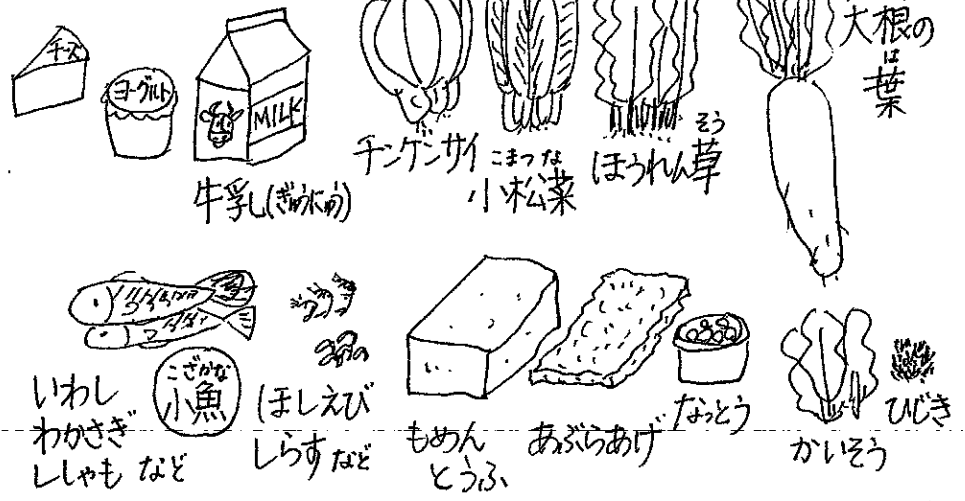 チーズ
ヨーグルト
MILK
牛乳(ぎゅうにゅう)
チンゲンサイ
こまつな
小松菜
そう
ほうれん草
大根の
は
葉
いわし
わかさぎ
ししゃも など
こざかな
小魚
ほしえび
しらす など
もめん
とうふ
あぶらあげ
なっとう
かいそう
ひじき